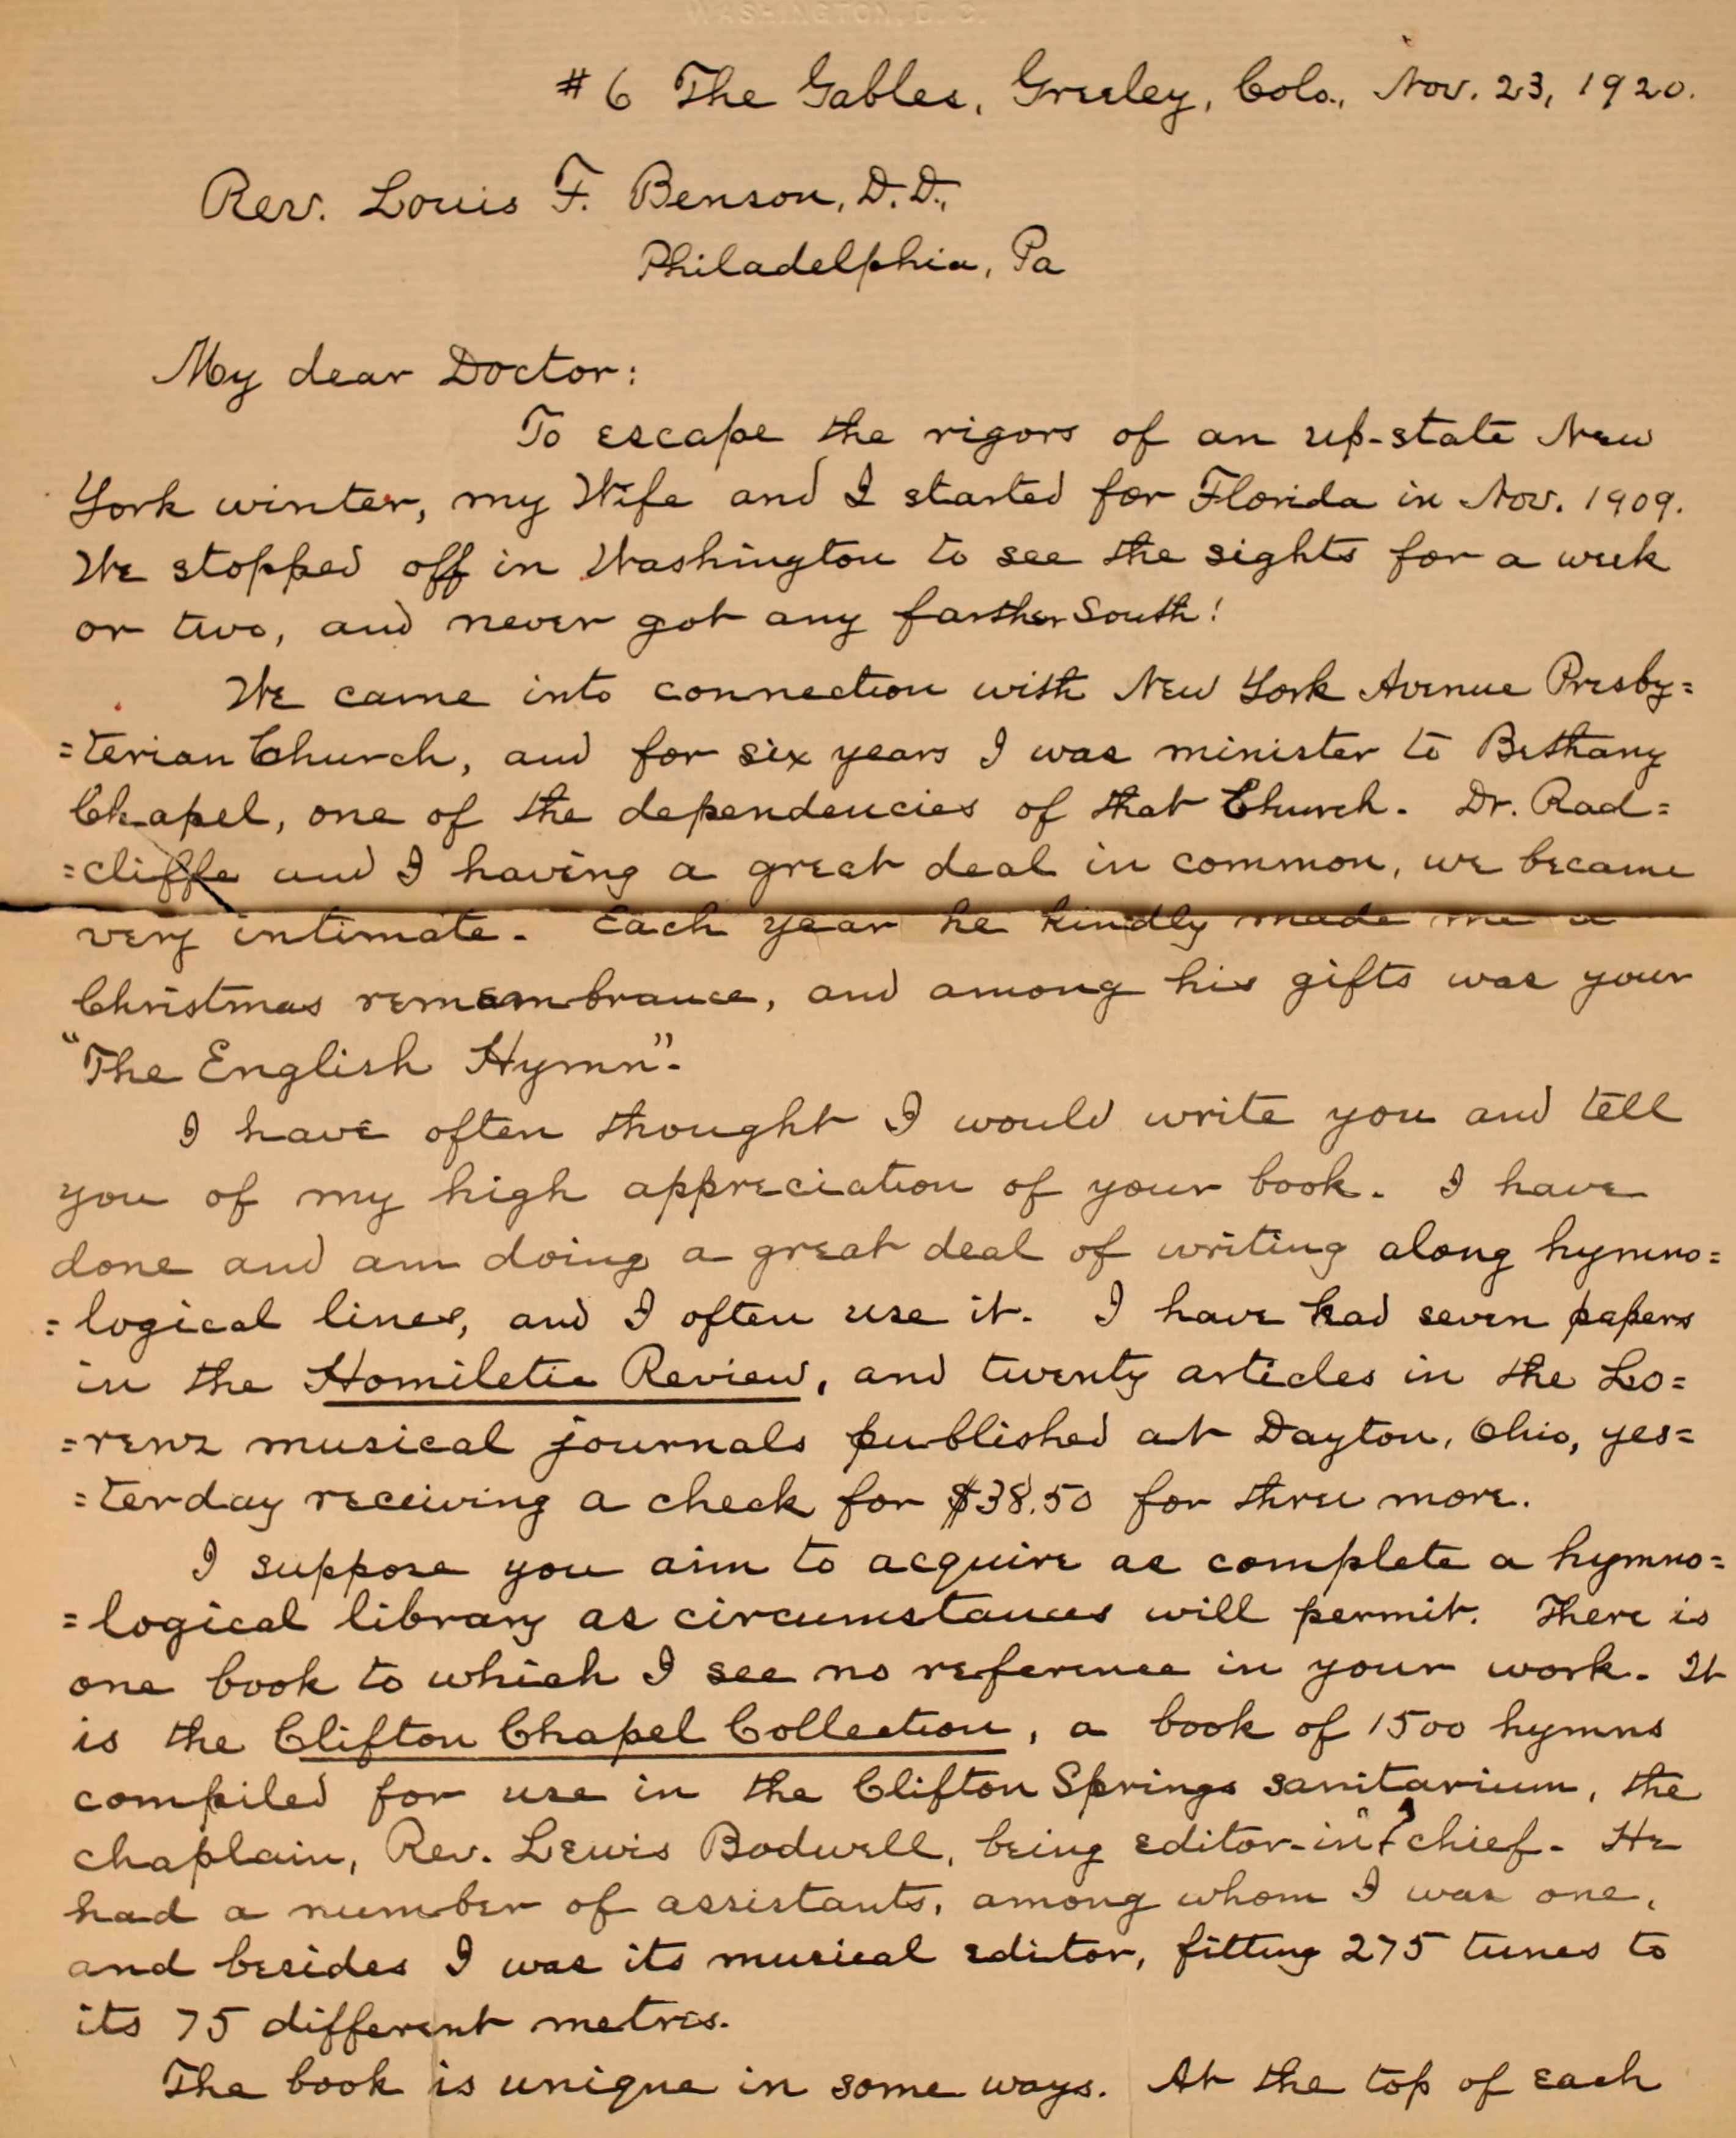 WASHINGTON, D. C.
# 6 The Gables, Greeley, Colo., Nov. 23, 1920.
Rev. Louis F. Benson, D.D.,
Philadelphia, Pa
My dear Doctor:
To escape the rigors of an up-state New
York winter, my Wife and I started for Florida in Nov. 1909.
We stopped off in Washington to see the sights for a week
or two, and never got any farther South!
We came into connection with New York Avenue Presby=
=terian Church, and for six years I was minister to Bethany
Chapel, one of the dependencies of that Church. Dr. Rad=
=cliffe and I having a great deal in common, we became
very intimate. Each year he kindly made me a
Christmas remembrance, and among his gifts was your
"The English Hymn".
I have often thought I would write you and tell
you of my high appreciation of your book. I have
done and am doing a great deal of writing along hymno=
=logical lines, and I often use it. I have had seven papers
in the Homiletic Review, and twenty articles in the Lo=
=renz musical journals published at Dayton, Ohio, yes=
=terday receiving a check for $38.50 for three more.
I suppose you aim to acquire as complete a hymno=
=logical library as circumstances will permit. There is
one book to which I see no reference in your work. It
is the Clifton Chapel Collection, a book of 1500 hymns
compiled for use in the Clifton Springs sanitarium, the
chaplain, Rev. Lewis Bodwell, being editor-in-chief. He
had a number of assistants, among whom I was one,
and besides I was its musical editor, fitting 275 tunes to
its 75 different metres.
The book is unique in some ways. At the top of each